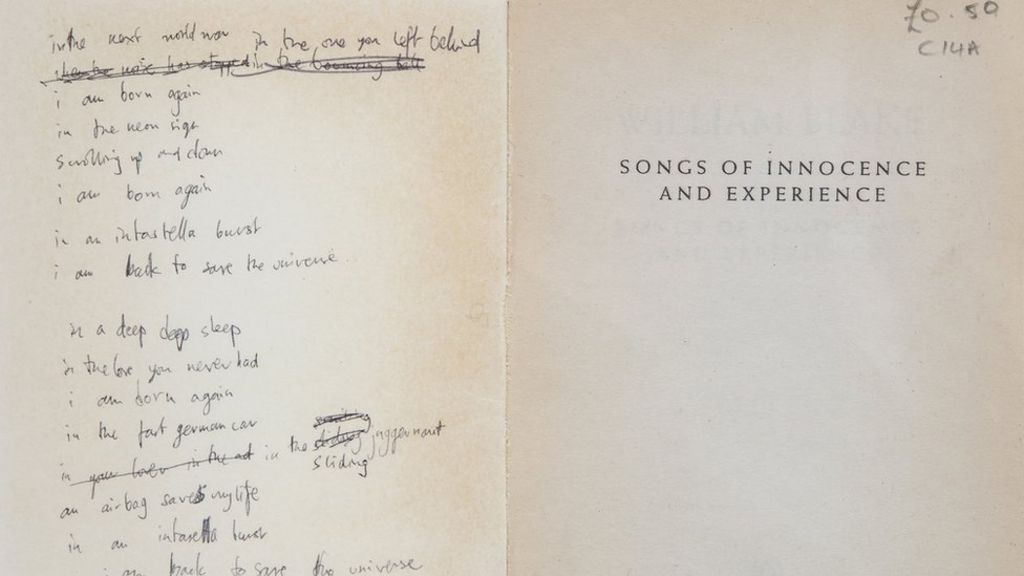 in the next world war in the one you left behind
when the noise has stopped in the bouncing
i am born again
in the neon sign
scrolling up and down
i am born again
in an intastella burst
i am back to save the universe.
in a deep deep sleep
in the love you never had
i am born again
in the fast german car
in your lover in the ad in the sliding juggernaut
sliding
an airbag saves my life
in an intastella burst
i am back to save the universe
£0.50
C14A
WILLIAM BLAKE
SONGS OF INNOCENCE
AND EXPERIENCE